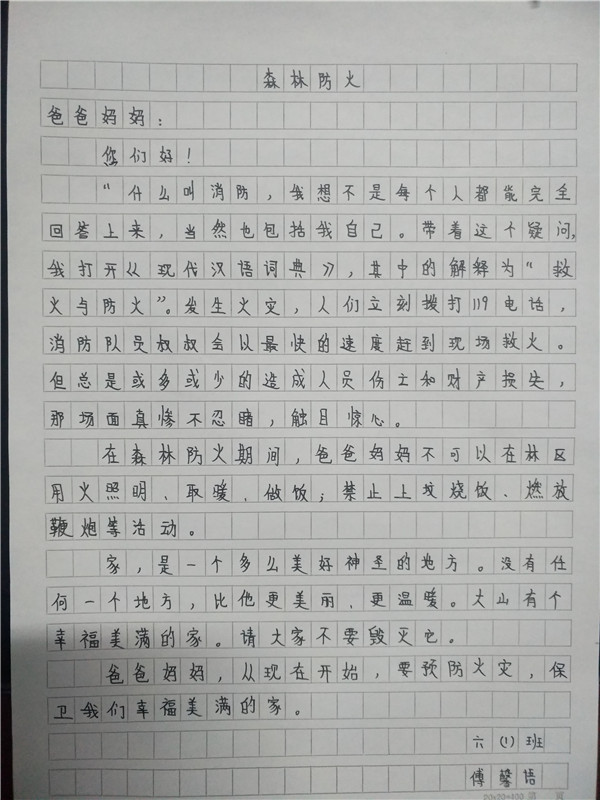 森林防火
爸爸妈妈：
您们好！
“什么叫消防，我想不是每个人都能完全
回答上来，当然也包括我自己。带着这个疑问，
我打开《现代汉语词典》，其中的解释为“救
火与防火”。发生火灾，人们立刻拨打119电话，
消防队员叔叔会以最快的速度赶到现场救火。
但总是或多或少的造成人员伤亡和财产损失，
那场面真惨不忍睹，触目惊心。
在森林防火期间，爸爸妈妈不可以在林区
用火照明、取暖、做饭；禁止上坟烧饭、燃放
鞭炮等活动。
家，是一个多么美好神圣的地方。没有任
何一个地方，比他更美丽、更温暖。大山有个
幸福美满的家。请大家不要毁灭它。
爸爸妈妈，从现在开始，要预防火灾，保
卫我们幸福美满的家。
六（1）班
傅馨语